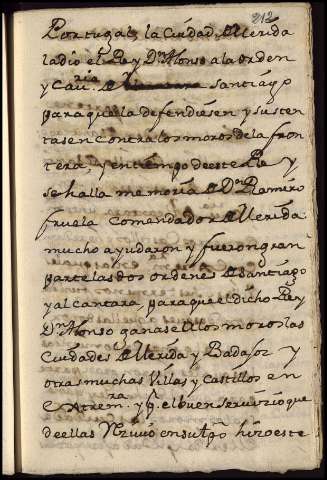 212
Portugal, la Ciudad de Merida
la dio el Rey Dn. Alonso a la orden
y Cauria. de Santiago
para que la defendiesen y susten
tasen contra los moros de la fron
tera, y en tiempo de este Re y
se halla memoria de Dn. Ramiro
fruela Comendador de Merida
mucho ayudaron y fueron gran
parte las dos ordenes de Santiago
y alcantara, para que el dicho Rey
Dn. Alonso ganase de los moros las
Ciudades de Merida y Badajoz y
otras muchas Villas y Castillos en
Extremra. y q. el buen servicio que
de ellas en su tpo. hizo este